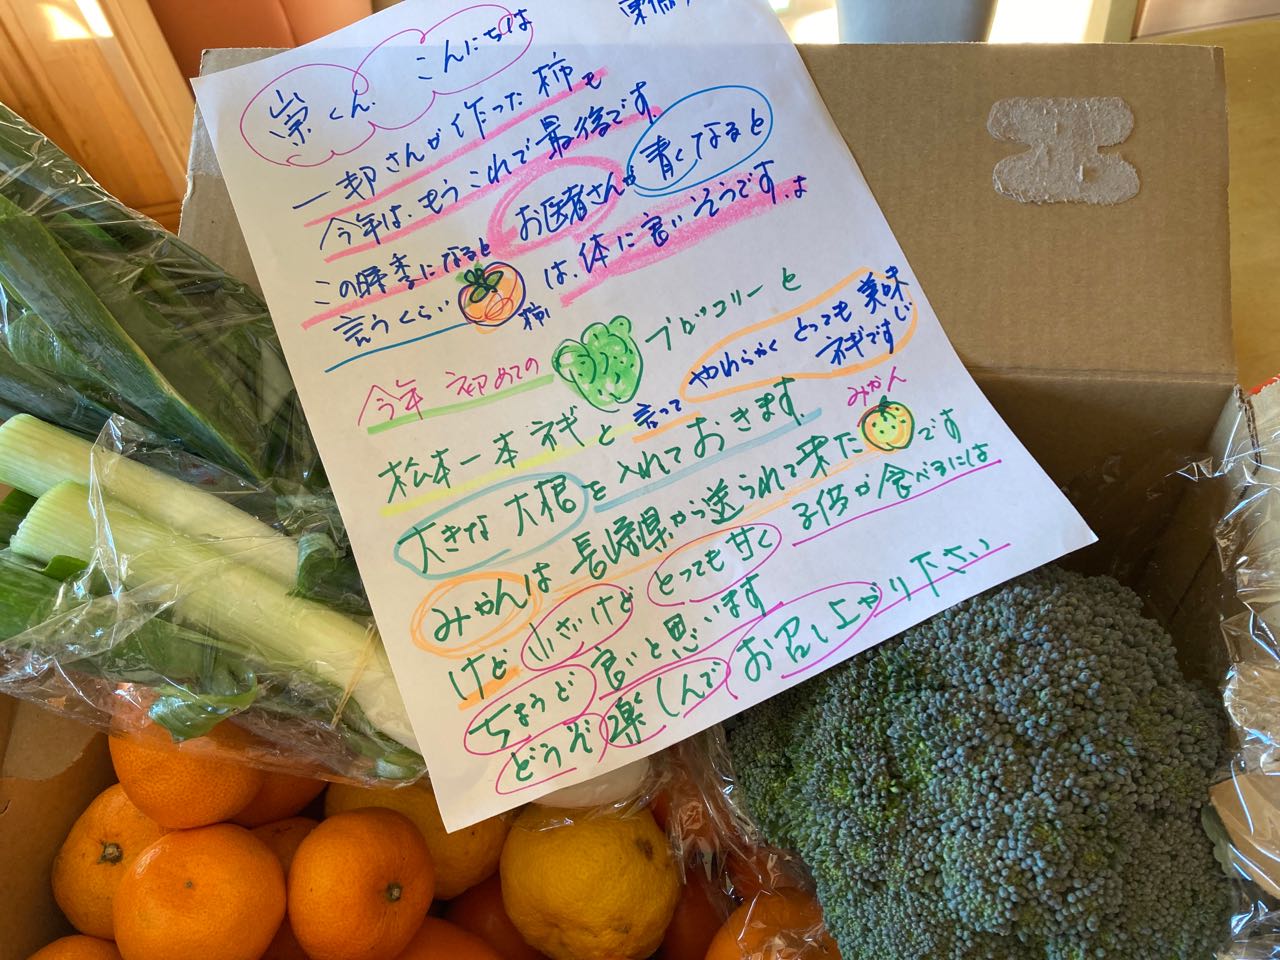 崇くん こんにちは
一邦さんが作った柿も
今年は、もうこれで最後です。
この時季になると お医者さんが青くなると
言うくらい 柿 は、体に良いそうです。よ
今年 初めての ブロッコリーと
松本一本ネギと 言って やわらかく とっても 美味しい
ネギです
大きな 大根を 入れておきます。
みかん
みかんは 長崎県から送られて来た です
けど 小さいけど とっても甘く 子供が食べるには
ちょうど 良いと思います
どうぞ 楽しんで お召し上がり下さい